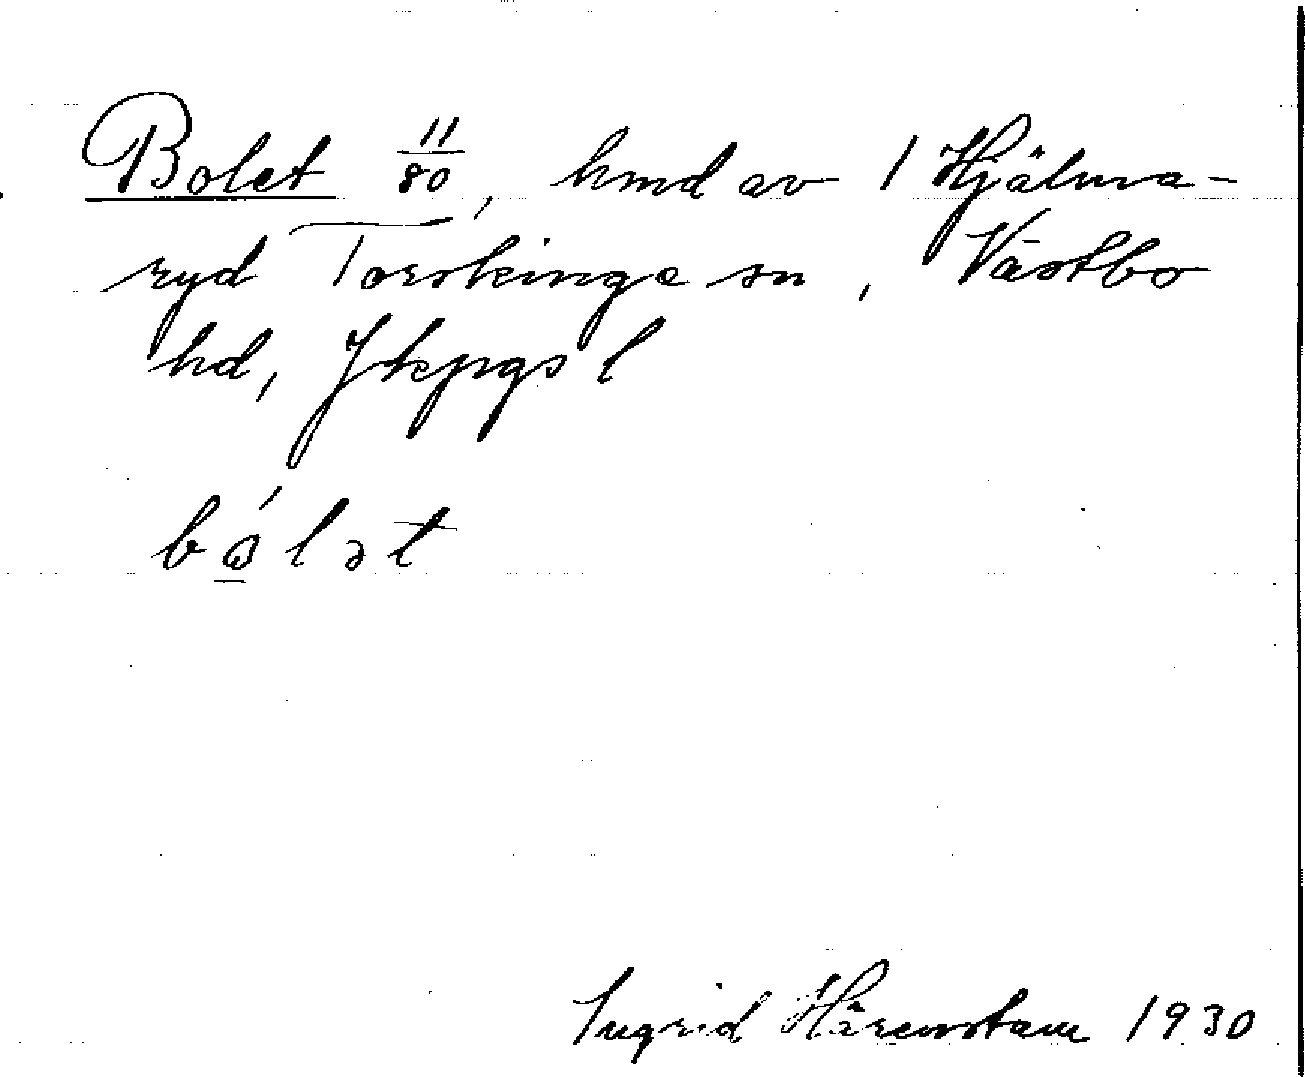 Bolet 11/80, hmd av 1 Hjälma-
ryd Torskinge sn, Västbo
hd, Jkpgs l
bó̲lət
Ingrid Härenstam 1930